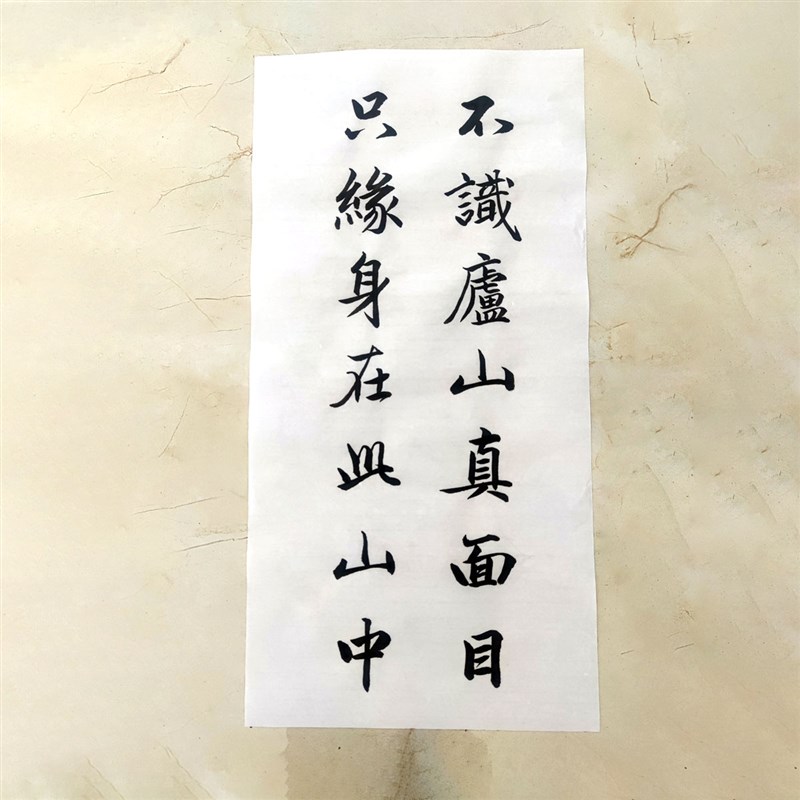 不識廬山真面目
只緣身在此山中